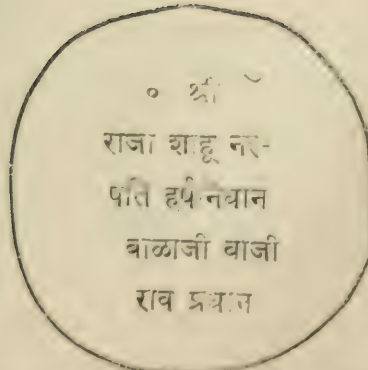 ० श्री ँ
राजा शाहू नर-
पति हर्षनिधान
बाळाजी बाजी
राव प्रधान